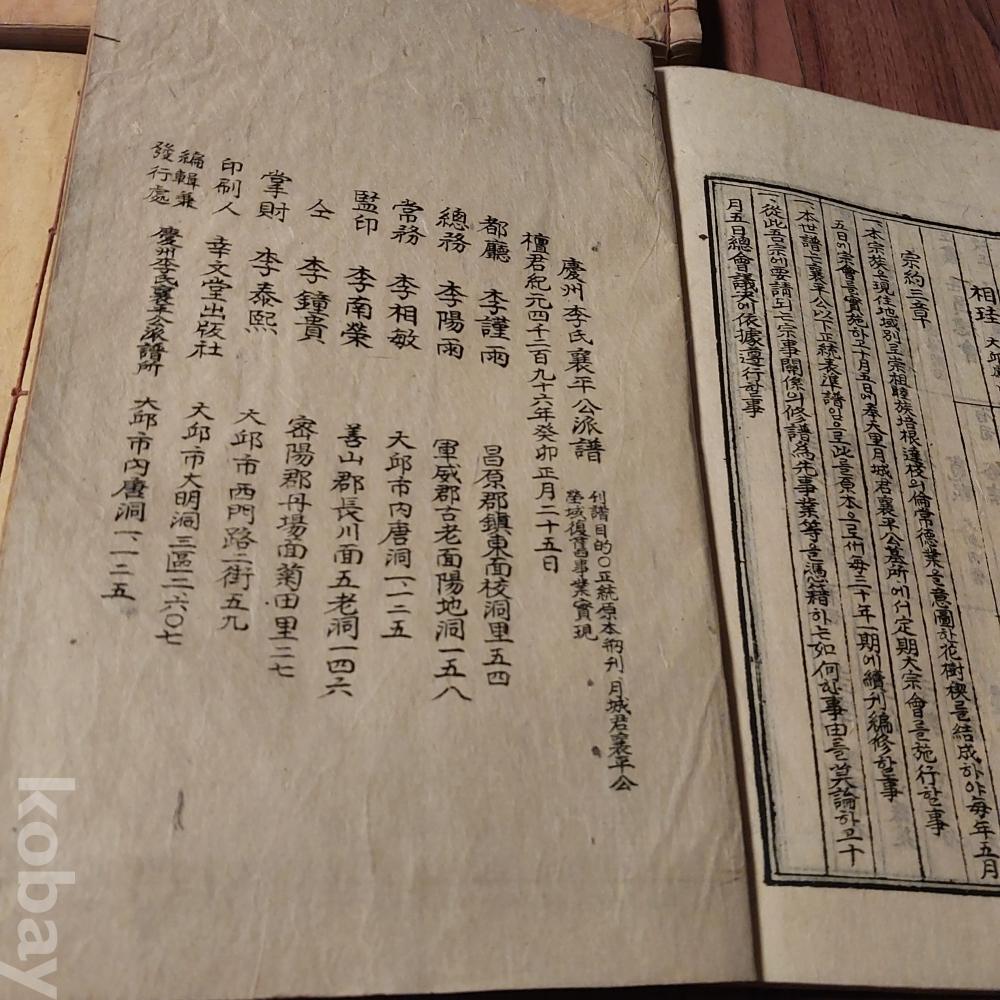 相珪
宗約三章
一本宗族은現住地域別로崇祖睦族培根達枝의倫常德業을意圖하야花樹稧를結成하야每年五月
五日에宗會를實施하고十月五日에奉天里月城君襄平公墓所에서定期大宗會를施行할事
一本世譜는襄平公以下正統表準譜임으로此를原本으로하여每三十年一期에續刊編修할事
一從此吾宗에要請되는宗事關係의修譜為先事業等을憑藉하는如何한事由를莫論하고十
月五日總會議決에依據遵行할事
慶州李氏襄平公派譜 刊譜目的○正統原本刱刊 月城君襄平公
塋域復舊事業實現
檀君紀元四千二百九十六年癸卯正月二十五日
都廳 李謹雨 昌原郡鎮東面校洞里五四
總務 李陽雨 軍威郡古老面陽地洞一五八
常務 李相敏 大邱市內唐洞一、一二五
監印 李南榮 善山郡長川面五老洞一四六
仝 李鐘貴 密陽郡丹場面菊田里二七
掌財 李泰熙 大邱市西門路二街五九
印刷人 幸文堂出版社 大邱市大明洞三區二、六〇七
編輯兼
發行處 慶州李氏襄平公派譜所 大邱市內唐洞一、一二五
kobay